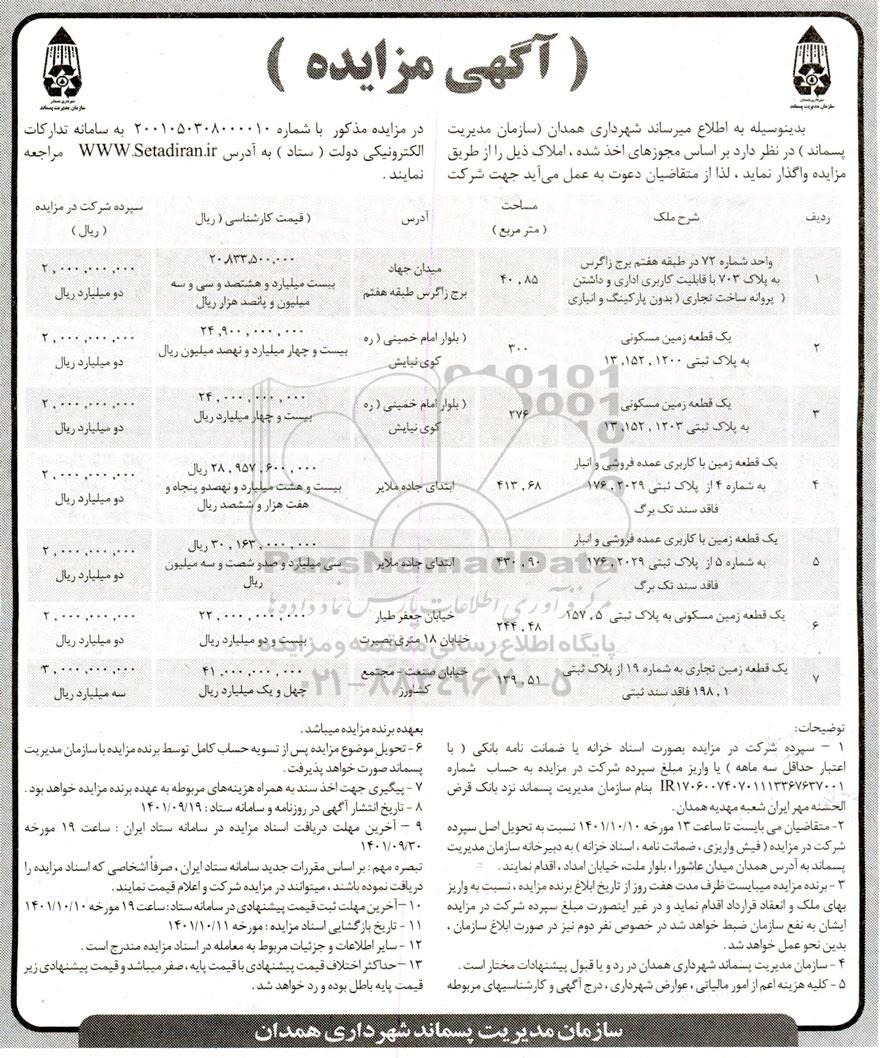 ( آگهی مزایده )
شهرداری همدان
سازمان مدیریت پسماند
شهرداری همدان
سازمان مدیریت پسماند
بدینوسیله به اطلاع میرساند شهرداری همدان (سازمان مدیریت
پسماند ) در نظر دارد بر اساس مجوزهای اخذ شده ، املاک ذیل را از طریق
مزایده واگذار نماید ، لذا از متقاضیان دعوت به عمل می‌آید جهت شرکت
در مزایده مذکور با شماره ۲۰۰۱۰۵۰۳۰۸۰۰۰۰۱۰ به سامانه تدارکات
الکترونیکی دولت ( ستاد ) به آدرس WWW.Setadiran.ir مراجعه
نمایند .
ردیف
شرح ملک
مساحت
( متر مربع )
آدرس
( قیمت کارشناسی ( ریال
سپرده شرکت در مزایده
( ریال )
۱
واحد شماره ۷۲ در طبقه هفتم برج زاگرس
به پلاک ۷۰۳ با قابلیت کاربری اداری و داشتن
( پروانه ساخت تجاری ( بدون پارکینگ و انباری
۴۰،۸۵
میدان جهاد
برج زاگرس طبقه هفتم
۲۰،۸۳۳،۵۰۰،۰۰۰
بیست میلیارد و هشتصد و سی و سه
میلیون و پانصد هزار ریال
۲،۰۰۰،۰۰۰،۰۰۰
دو میلیارد ریال
۲
یک قطعه زمین مسکونی
به پلاک ثبتی ۱۲۰۰ ، ۱۳،۱۵۲
۳۰۰
( بلوار امام خمینی ( ره
کوی نیایش
۲۴،۹۰۰،۰۰۰،۰۰۰
بیست و چهار میلیارد و نهصد میلیون ریال
۲،۰۰۰،۰۰۰،۰۰۰
دو میلیارد ریال
۳
یک قطعه زمین مسکونی
به پلاک ثبتی ۱۲۰۳ ، ۱۳،۱۵۲
۲۷۶
( بلوار امام خمینی ( ره
کوی نیایش
۲۴،۰۰۰،۰۰۰،۰۰۰
بیست و چهار میلیارد ریال
۲،۰۰۰،۰۰۰،۰۰۰
دو میلیارد ریال
۴
یک قطعه زمین با کاربری عمده فروشی و انبار
به شماره ۴ از پلاک ثبتی ۲۰۲۹ ، ۱۷۶
فاقد سند تک برگ
۴۱۳،۶۸
ابتدای جاده ملایر
۲۸،۹۵۷،۶۰۰،۰۰۰ ریال
بیست و هشت میلیارد و نهصدو پنجاه و
هفت هزار و ششصد ریال
۲،۰۰۰،۰۰۰،۰۰۰
دو میلیارد ریال
۵
یک قطعه زمین با کاربری عمده فروشی و انبار
به شماره ۵ از پلاک ثبتی ۲۰۲۹ ، ۱۷۶
فاقد سند تک برگ
۴۳۰،۹۰
ابتدای جاده ملایر
۳۰،۱۶۳،۰۰۰،۰۰۰ ریال
سی میلیارد و صدو شصت و سه میلیون
ریال
۲،۰۰۰،۰۰۰،۰۰۰
دو میلیارد ریال
۶
یک قطعه زمین مسکونی به پلاک ثبتی ۵ ، ۱۵۷
۲۴۴،۴۸
خیابان جعفر طیار
خیابان ۱۸ متری بصیرت
۲۲،۰۰۰،۰۰۰،۰۰۰
بیست و دو میلیارد ریال
۲،۰۰۰،۰۰۰،۰۰۰
دو میلیارد ریال
۷
یک قطعه زمین تجاری به شماره ۱۹ از پلاک ثبتی
۱ ، ۱۹۸ فاقد سند ثبتی
۱۳۹،۵۱
خیابان صنعت - مجتمع
کشاورز
۴۱،۰۰۰،۰۰۰،۰۰۰
چهل و یک میلیارد ریال
۳،۰۰۰،۰۰۰،۰۰۰
سه میلیارد ریال
ParsNamadData
مرکز فرآوری اطلاعات پارس نماد داده ها
پایگاه اطلاع رسانی مناقصه و مزایده
۰۲۱-۸۸۳۴۹۶۷۰-۵
توضیحات:
۱ – سپرده شرکت در مزایده بصورت اسناد خزانه یا ضمانت نامه بانکی ( با
اعتبار حداقل سه ماهه ) یا واریز مبلغ سپرده شرکت در مزایده به حساب شماره
IR۱۷۰۶۰۰۷۴۰۷۰۱۱۱۳۳۶۷۶۳۷۰۰۱ بنام سازمان مدیریت پسماند نزد بانک قرض
الحسنه مهر ایران شعبه مهدیه همدان .
۲- متقاضیان می بایست تا ساعت ۱۳ مورخه ۱۴۰۱/۱۰/۱۰ نسبت به تحویل اصل سپرده
شرکت در مزایده ( فیش واریزی ، ضمانت نامه ، اسناد خزانه ) به دبیرخانه سازمان مدیریت
پسماند به آدرس همدان میدان عاشورا ، بلوار ملت، خیابان امداد ، اقدام نمایند .
۳ - برنده مزایده میبایست ظرف مدت هفت روز از تاریخ ابلاغ برنده مزایده ، نسبت به واریز
بهای ملک و انعقاد قرارداد اقدام نماید و در غیر اینصورت مبلغ سپرده شرکت در مزایده
ایشان به نفع سازمان ضبط خواهد شد در خصوص نفر دوم نیز در صورت ابلاغ سازمان ،
بدین نحو عمل خواهد شد .
۴ - سازمان مدیریت پسماند شهرداری همدان در رد و یا قبول پیشنهادات مختار است .
۵ - کلیه هزینه اعم از امور مالیاتی ، عوارض شهرداری ، درج آگهی و کارشناسیهای مربوطه
بعهده برنده مزایده میباشد .
۶ - تحویل موضوع مزایده پس از تسویه حساب کامل توسط برنده مزایده با سازمان مدیریت
پسماند صورت خواهد پذیرفت .
۷ - پیگیری جهت اخذ سند به همراه هزینه‌های مربوطه به عهده برنده مزایده خواهد بود .
۸ - تاریخ انتشار آگهی در روزنامه و سامانه ستاد : ۱۴۰۱/۰۹/۱۹
۹ – آخرین مهلت دریافت اسناد مزایده در سامانه ستاد ایران : ساعت ۱۹ مورخه
۱۴۰۱/۰۹/۳۰
تبصره مهم : بر اساس مقررات جدید سامانه ستاد ایران ، صرفاً اشخاصی که اسناد مزایده را
دریافت نموده باشند ، میتوانند در مزایده شرکت و اعلام قیمت نمایند.
۱۰-آخرین مهلت ثبت قیمت پیشنهادی در سامانه ستاد : ساعت ۱۹ مورخه ۱۴۰۱/۱۰/۱۰
۱۱ - تاریخ بازگشایی اسناد مزایده : مورخه ۱۴۰۱/۱۰/۱۱
۱۲ - سایر اطلاعات و جزئیات مربوط به معامله در اسناد مزایده مندرج است .
۱۳ -حداکثر اختلاف قیمت پیشنهادی با قیمت پایه ، صفر میباشد و قیمت پیشنهادی زیر
قیمت پایه باطل بوده و رد خواهد شد .
سازمان مدیریت پسماند شهرداری همدان